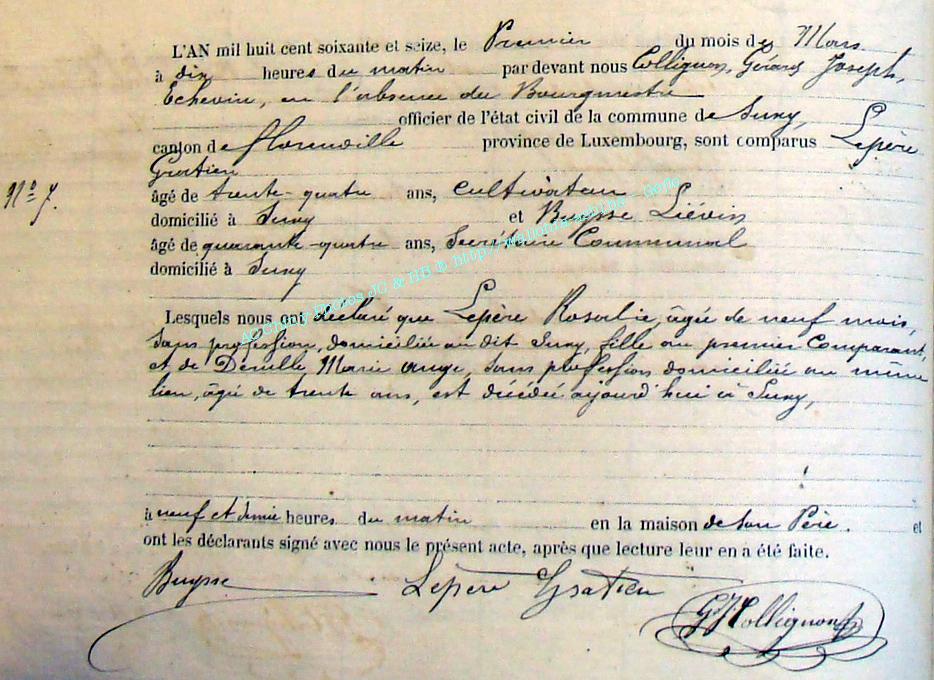 L'AN mil huit cent soixante et seize, le Premier du mois de Mars
à dix heures du matin par devant nous Collignon, Gérard Joseph,
Echevin, en l'absence du Bourgmestre
officier de l'état civil de la commune de Suxy,
canton de Florenville province de Luxembourg, sont comparus Lepère
Gratien
N° 7.
âgé de trente-quatre ans, Cultivateur
domicilié à Suxy et Buysse Liévin
âgé de quarante-quatre ans, Secrétaire Communal
domicilié à Suxy
Lesquels nous ont déclaré que Lepère Rosalie, agée de neuf mois,
sans profession, domiciliée au dit Suxy, fille au premier Comparant,
et de Marie Ange, sans profession domiciliée au même
lieu, agée de trente ans, est décédée aujourd'hui à Suxy,
à neuf et demie heures du matin en la maison de son Père. et
ont les déclarants signé avec nous le présent acte, après que lecture leur en a été faite.
Buysse Lepère Gratien GJCollignon